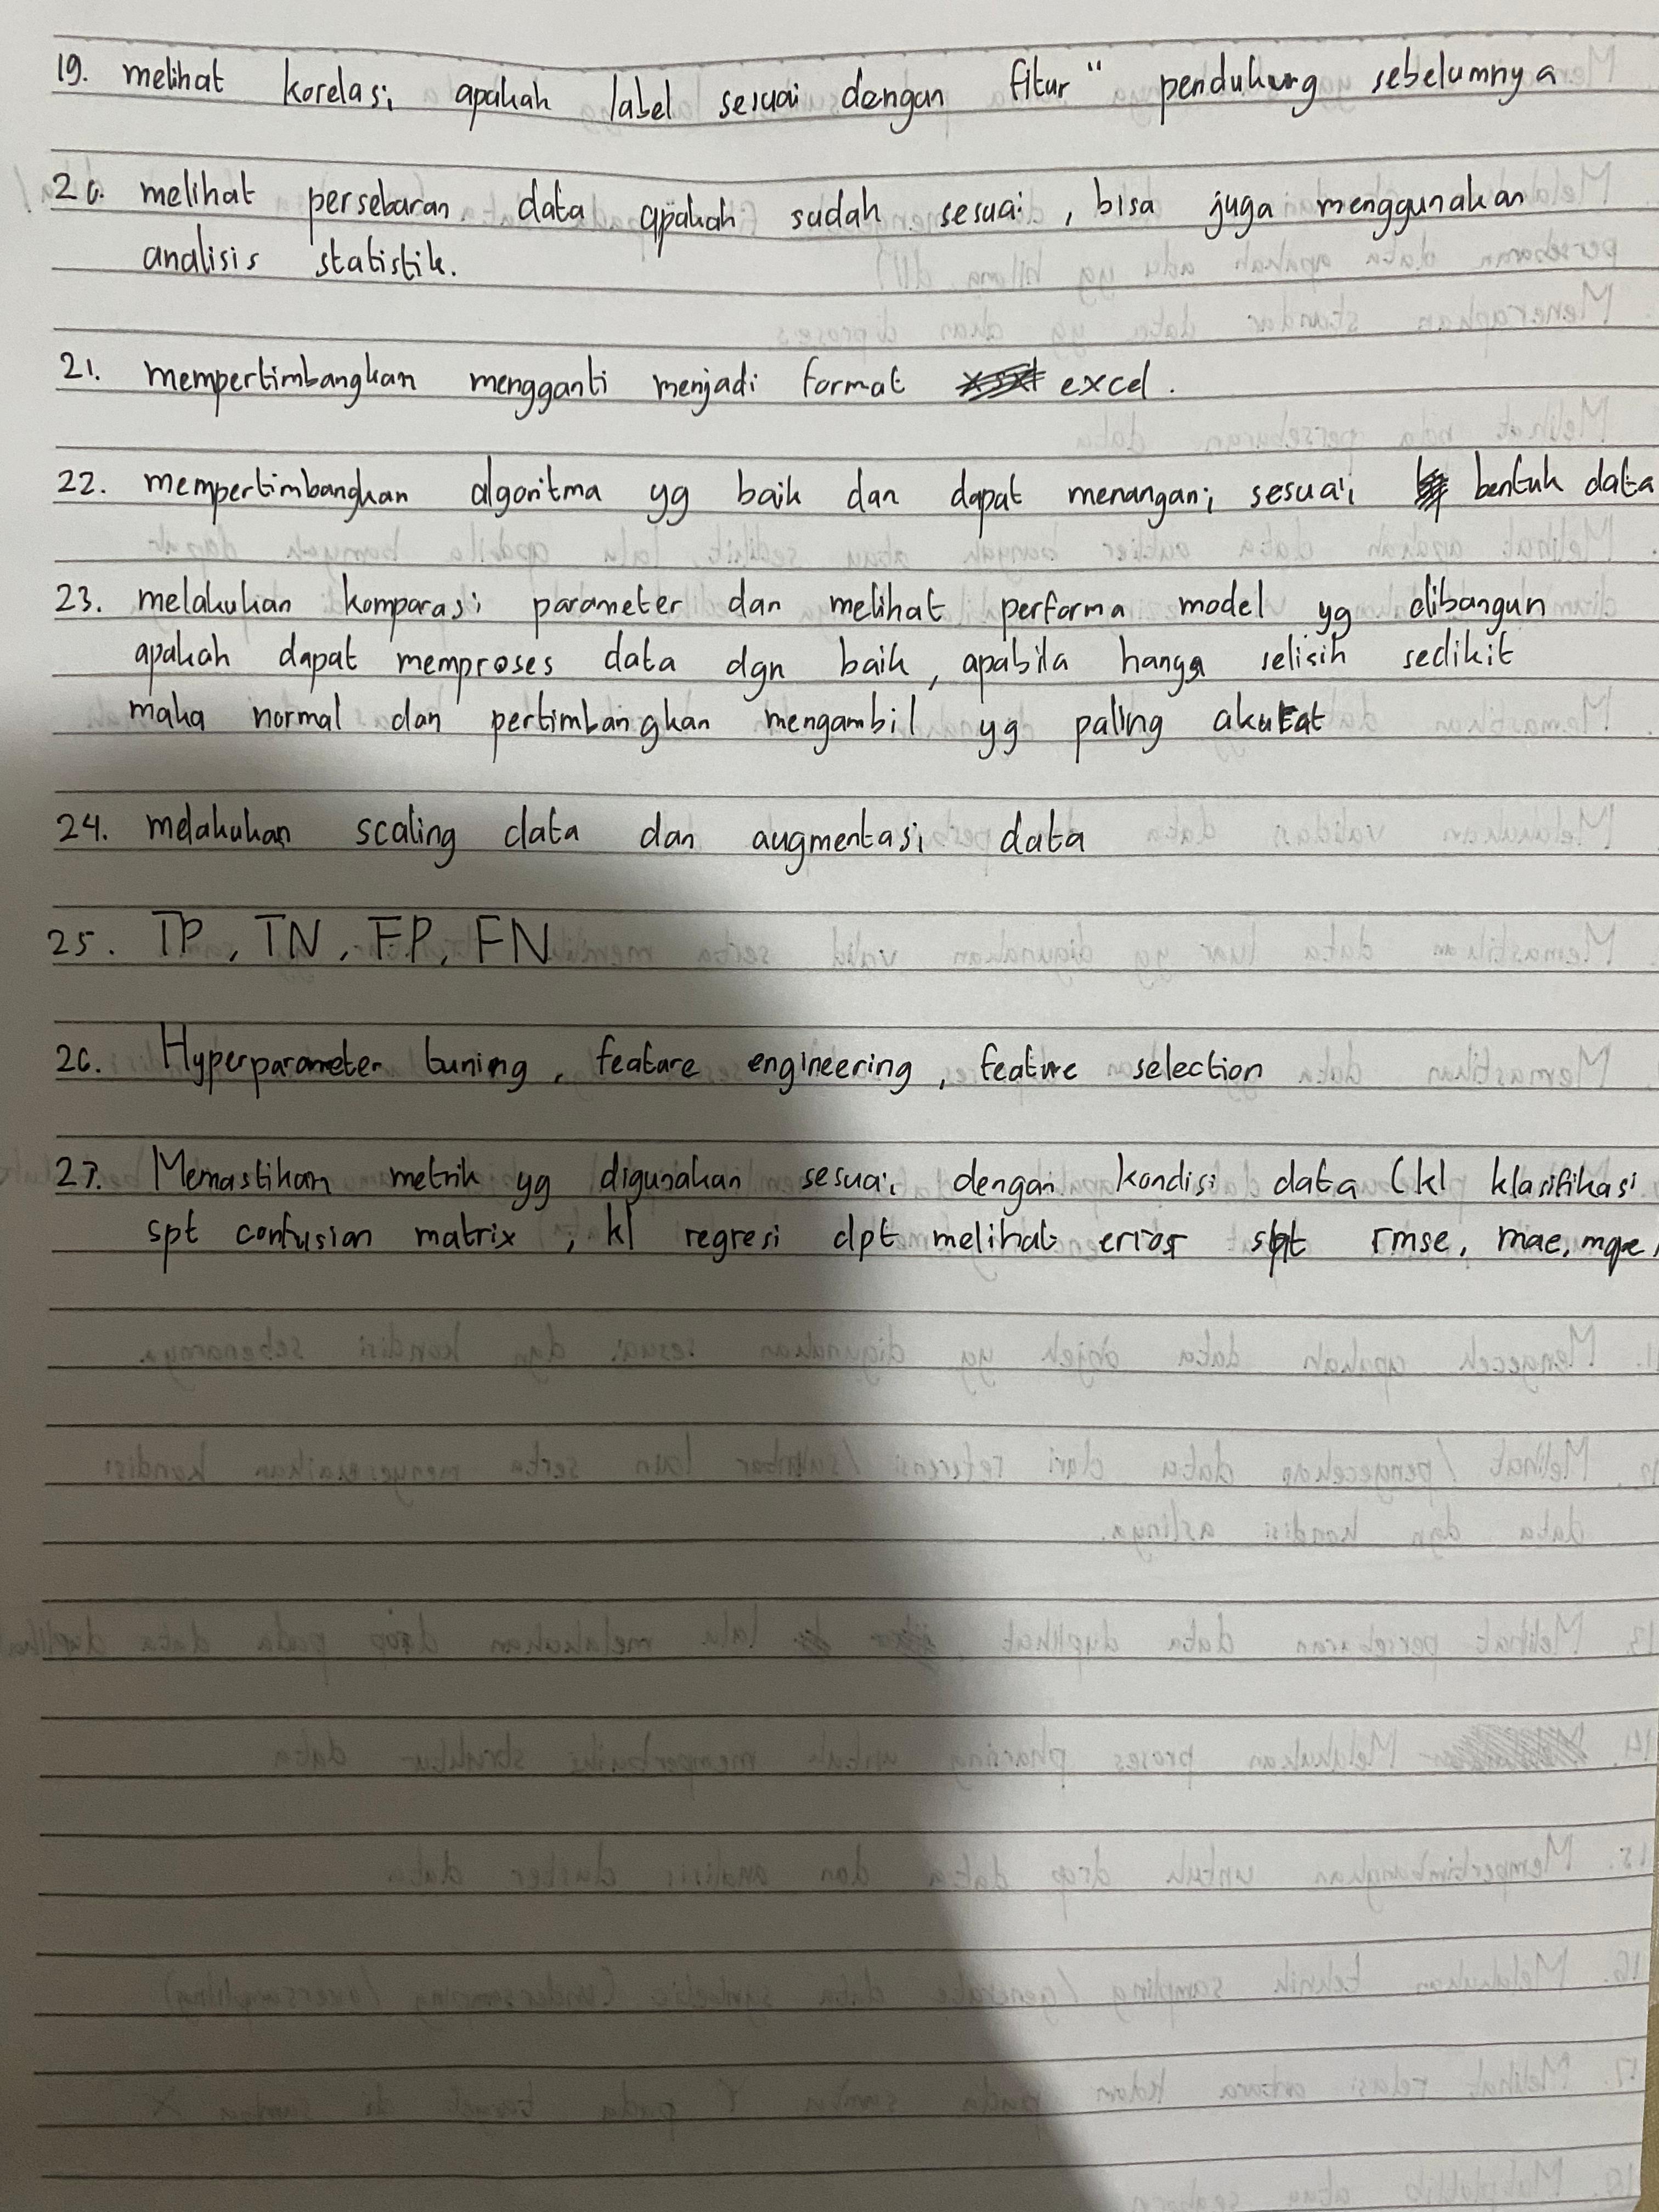 19. melihat korelasi apakah label sesuai dengan fitur" pendukung sebelumnya
20. melihat persebaran data apakah sudah sesuai, bisa juga menggunakan
analisis statistik.
21. mempertimbangkan mengganti menjadi format excel.
22. mempertimbangkan algoritma yg baik dan dapat menangani sesuai bentuk data
23. melakukan komparasi parameter dan melihat performa model yg dibangun
apakah dapat memproses data dgn baik, apabila hanya selisih sedikit
maka normal dan pertimbangkan mengambil yg paling akurat
24. melakukan scaling data dan augmentasi data
25. TP, TN, FP, FN
26. Hyperparameter tuning, feature engineering, feature selection
27. Memastikan metrik yg digunakan sesuai dengan kondisi data (kl klasifikasi
spt confusion matrix, kl regresi dpt melihat error spt rmse, mae,